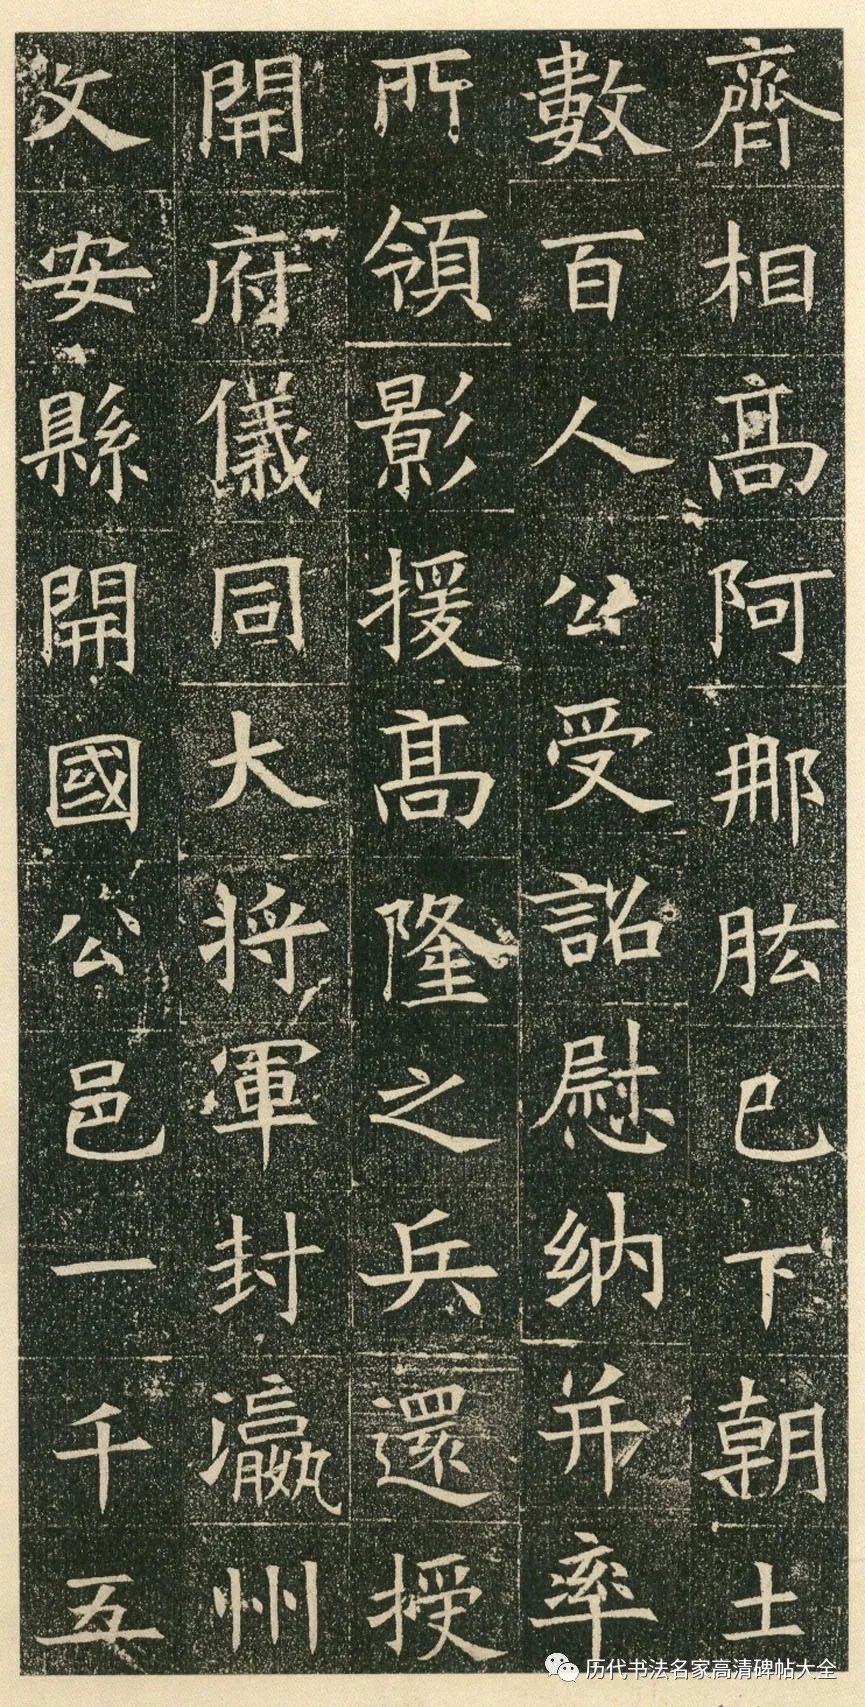 齊相高阿那肱已下朝士
數百人公受詔慰納并率
所領影援高隆之兵還授
開府儀同大將軍封瀛州
文安縣開國公邑一千五
历代书法名家高清碑帖大全